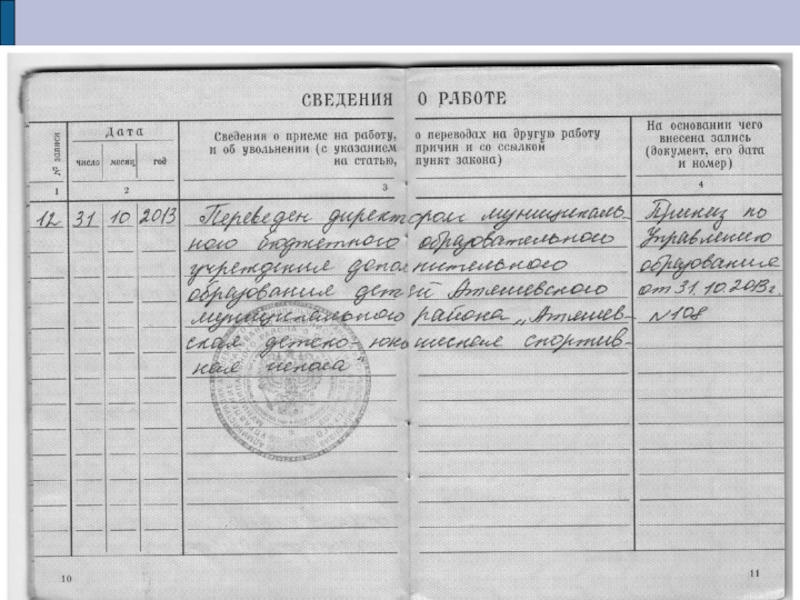 СВЕДЕНИЯ О РАБОТЕ
№ записи
Дата
число месяц год
Сведения о приеме на работу, о переводах на другую работу
и об увольнении (с указанием причин и со ссылкой
на статью, пункт закона)
На основании чего
внесена запись
(документ, его дата
и номер)
1 2 3 4
12 31 10 2013 Переведен директором муниципаль-
ного бюджетного образовательного
учреждения дополнительного
образования детей Атяшевского
муниципального района „Атяшев-
ская детско-юношеская спортив-
ная школа"
Приказ по
Управлению
образования
от 31.10.2013г.
N 108
10
11